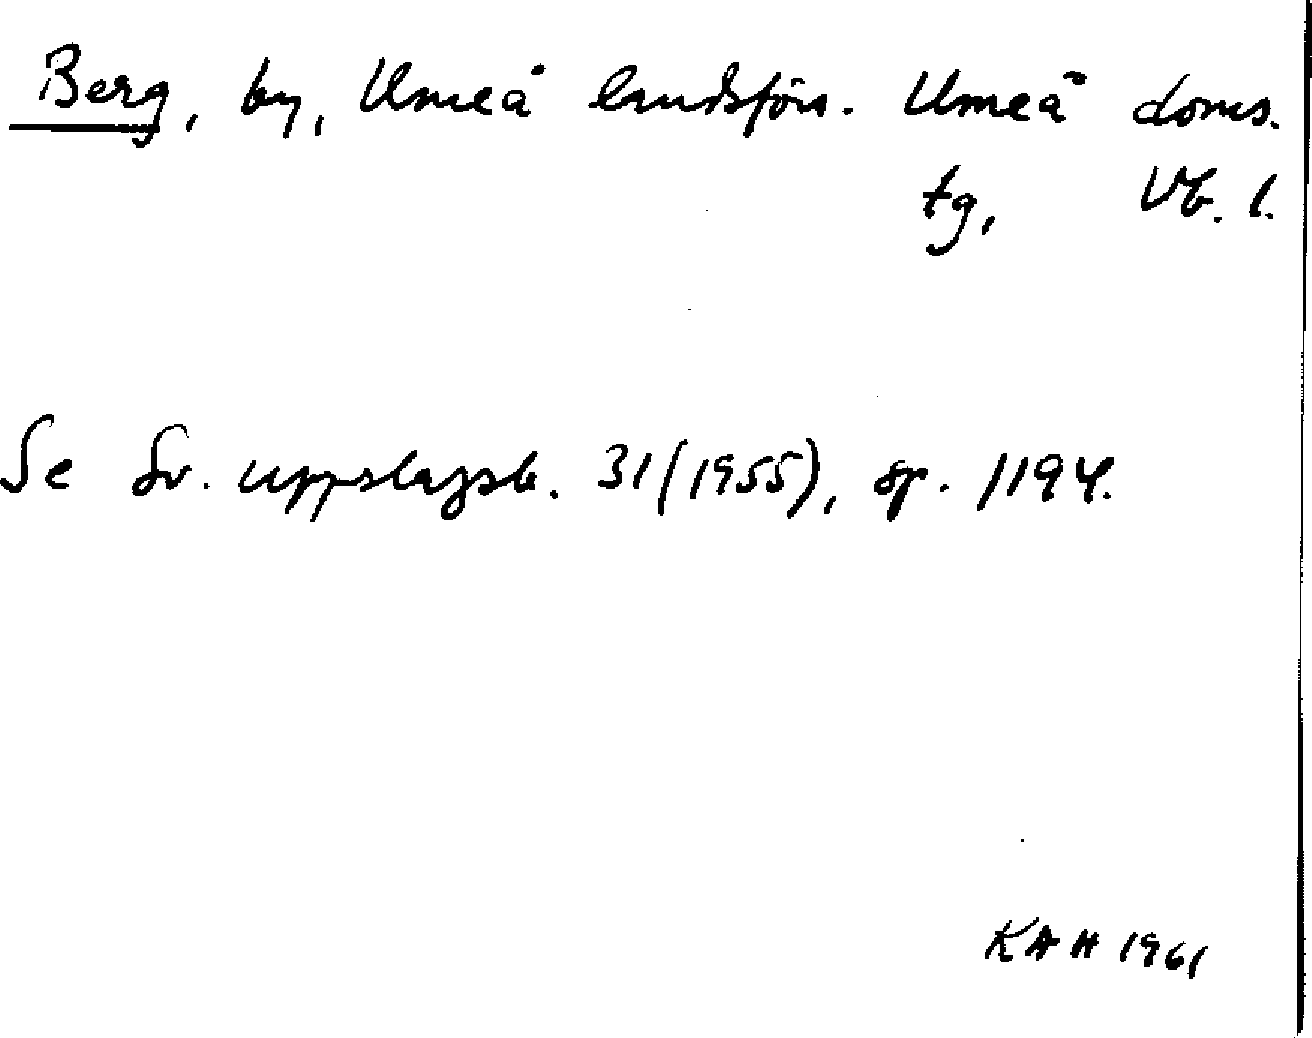 Berg, by, Umeå landsförs. Umeå doms.
tg, Vb. l.
Se Sv. uppslagsb. 31(1955), sp. 1194.
KAH 1961